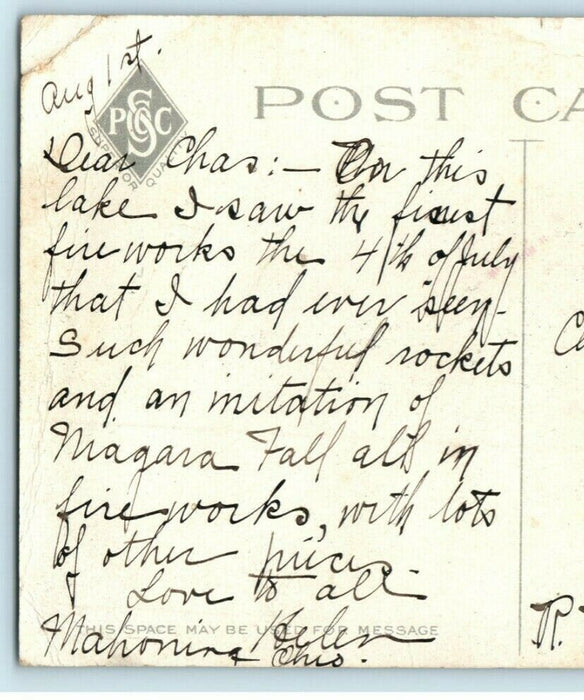 Aug 1st.
PSCC
SUPERIOR QUALITY
POST CA
Dear Chas:- On this
lake I saw the finest
fireworks the 4th of July
that I had ever seen.
Such wonderful rockets
and an imitation of
Niagara Fall all in
fireworks, with lots
of other pieces.
Love to all
THIS SPACE MAY BE USED FOR MESSAGE
Helen
Ohio.
R.